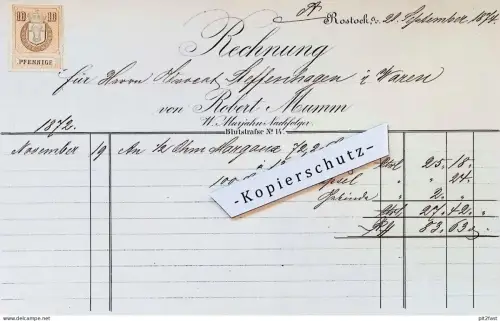 10 10
PFENNIGE
Rostock, d. 28. September 1874.
Rechnung
für Herrn Advocat Steffenhagen i. Waren
von Robert Mumm
W. Marjahn Nachfolger.
Blutstraße No 14.
1872.
November 19 An ½ Ohm 72,2
100
25. 18.
" " 24.
Gebinde " 2. "
27. 42.
83. 63.
-Kopierschutz-
pit2hast